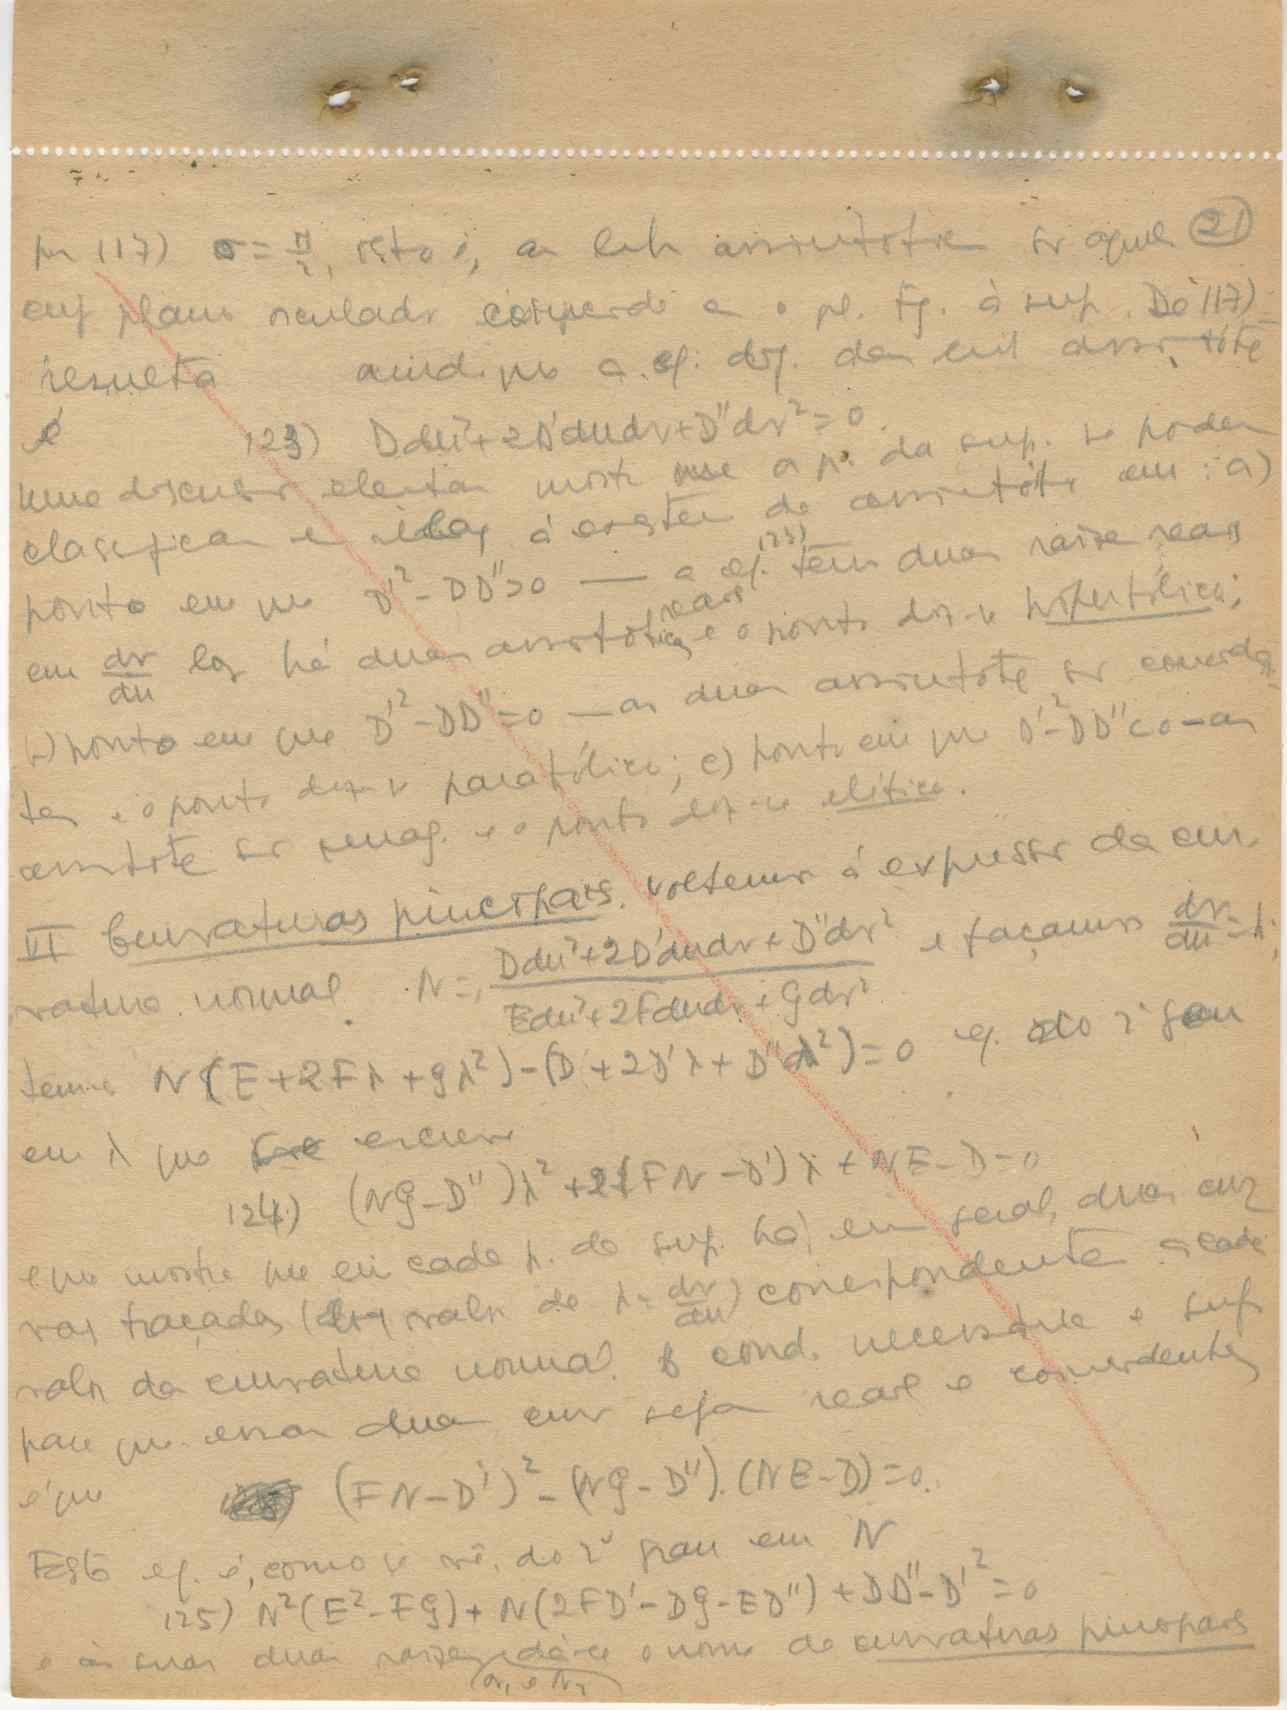 21
por 117) σ = π/2, isto é, as linh assintótica são aquel
cuj plano osculador coincide com o pl. tg. à sup. De 117)
resulta ainda que a eq. dif. das curv assintóte
é 123) Ddu²+2D'dudv+D"dv²=0.
uma discussão elementar mostra que os p. da sup. se podem
classificar em relação à existên de assintóta em: a)
ponto em que D'²-DD">0 — a eq. 123) tem duas raízes reais
em dv/du logo há duas assintóticas reais e o ponto diz-se hiperbólico;
b) ponto em que D'²-DD"=0 — as duas assintóte são coinciden
tes e o ponto diz-se parabólico; c) ponto em que D'²-DD"<0 — as
assintóte são imag. e o ponto diz-se elítico.
VI Curvaturas principais. Voltemos à expressão da cur
vatura normal N = (Ddu²+2D'dudv+D"dv²)/(Edu²+2Fdudv+Gdv²) e façamos dv/du=λ;
temos N(E+2Fλ+Gλ²)-(D+2D'λ+D"λ²)=0 eq. do 2º grau
em λ que se escreve
124) (NG-D")λ²+2(FN-D')λ+NE-D=0
e que mostra que em cada p. da sup. há, em geral, duas cur
vas traçadas (dois valor de λ=dv/du) correspondente a cada
valor da curvatura normal. A cond. necessária e suf
para que essas duas curv sejam reais e coincidentes
é que (FN-D')²-(NG-D").(NE-D)=0.
Esta eq. é, como se vê, do 2º grau em N
125) N²(E²-FG)+N(2FD'-DG-ED")+DD"-D'²=0
e às suas duas raízes (N₁ e N₂) dá-se o nome de curvaturas principais